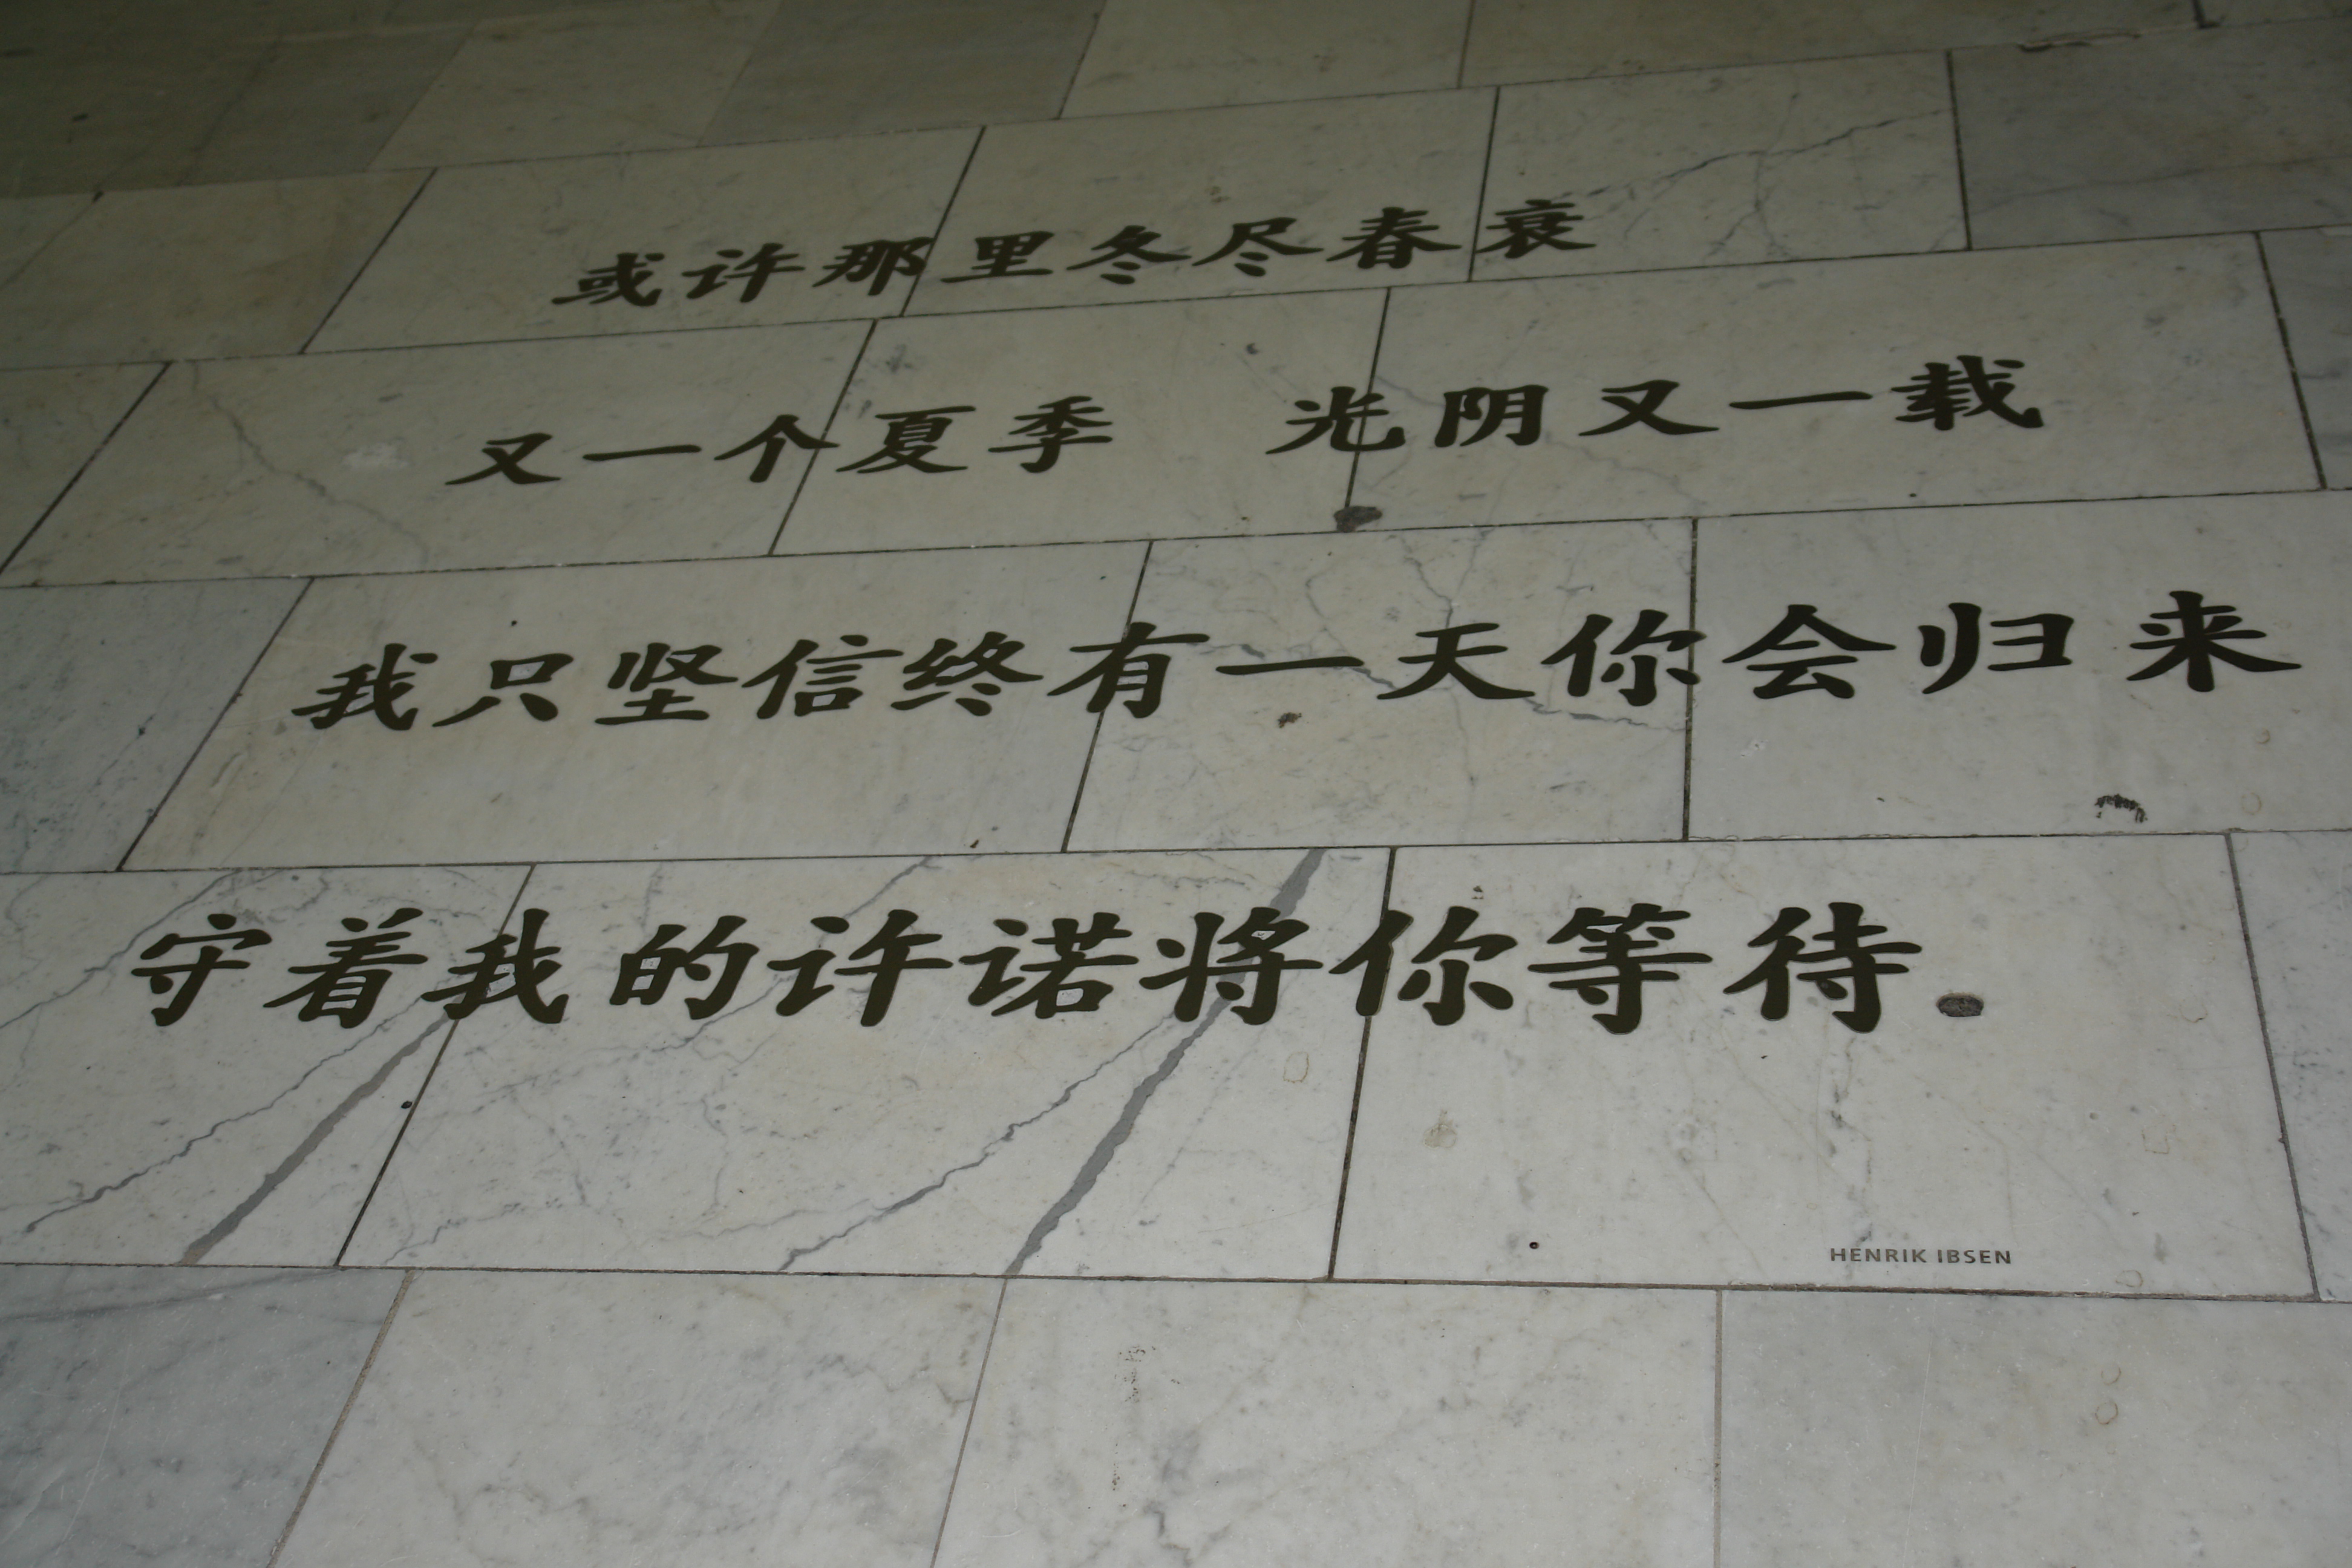 或许那里冬尽春衰
又一个夏季 光阴又一载
我只坚信终有一天你会归来
守着我的许诺将你等待.
HENRIK IBSEN